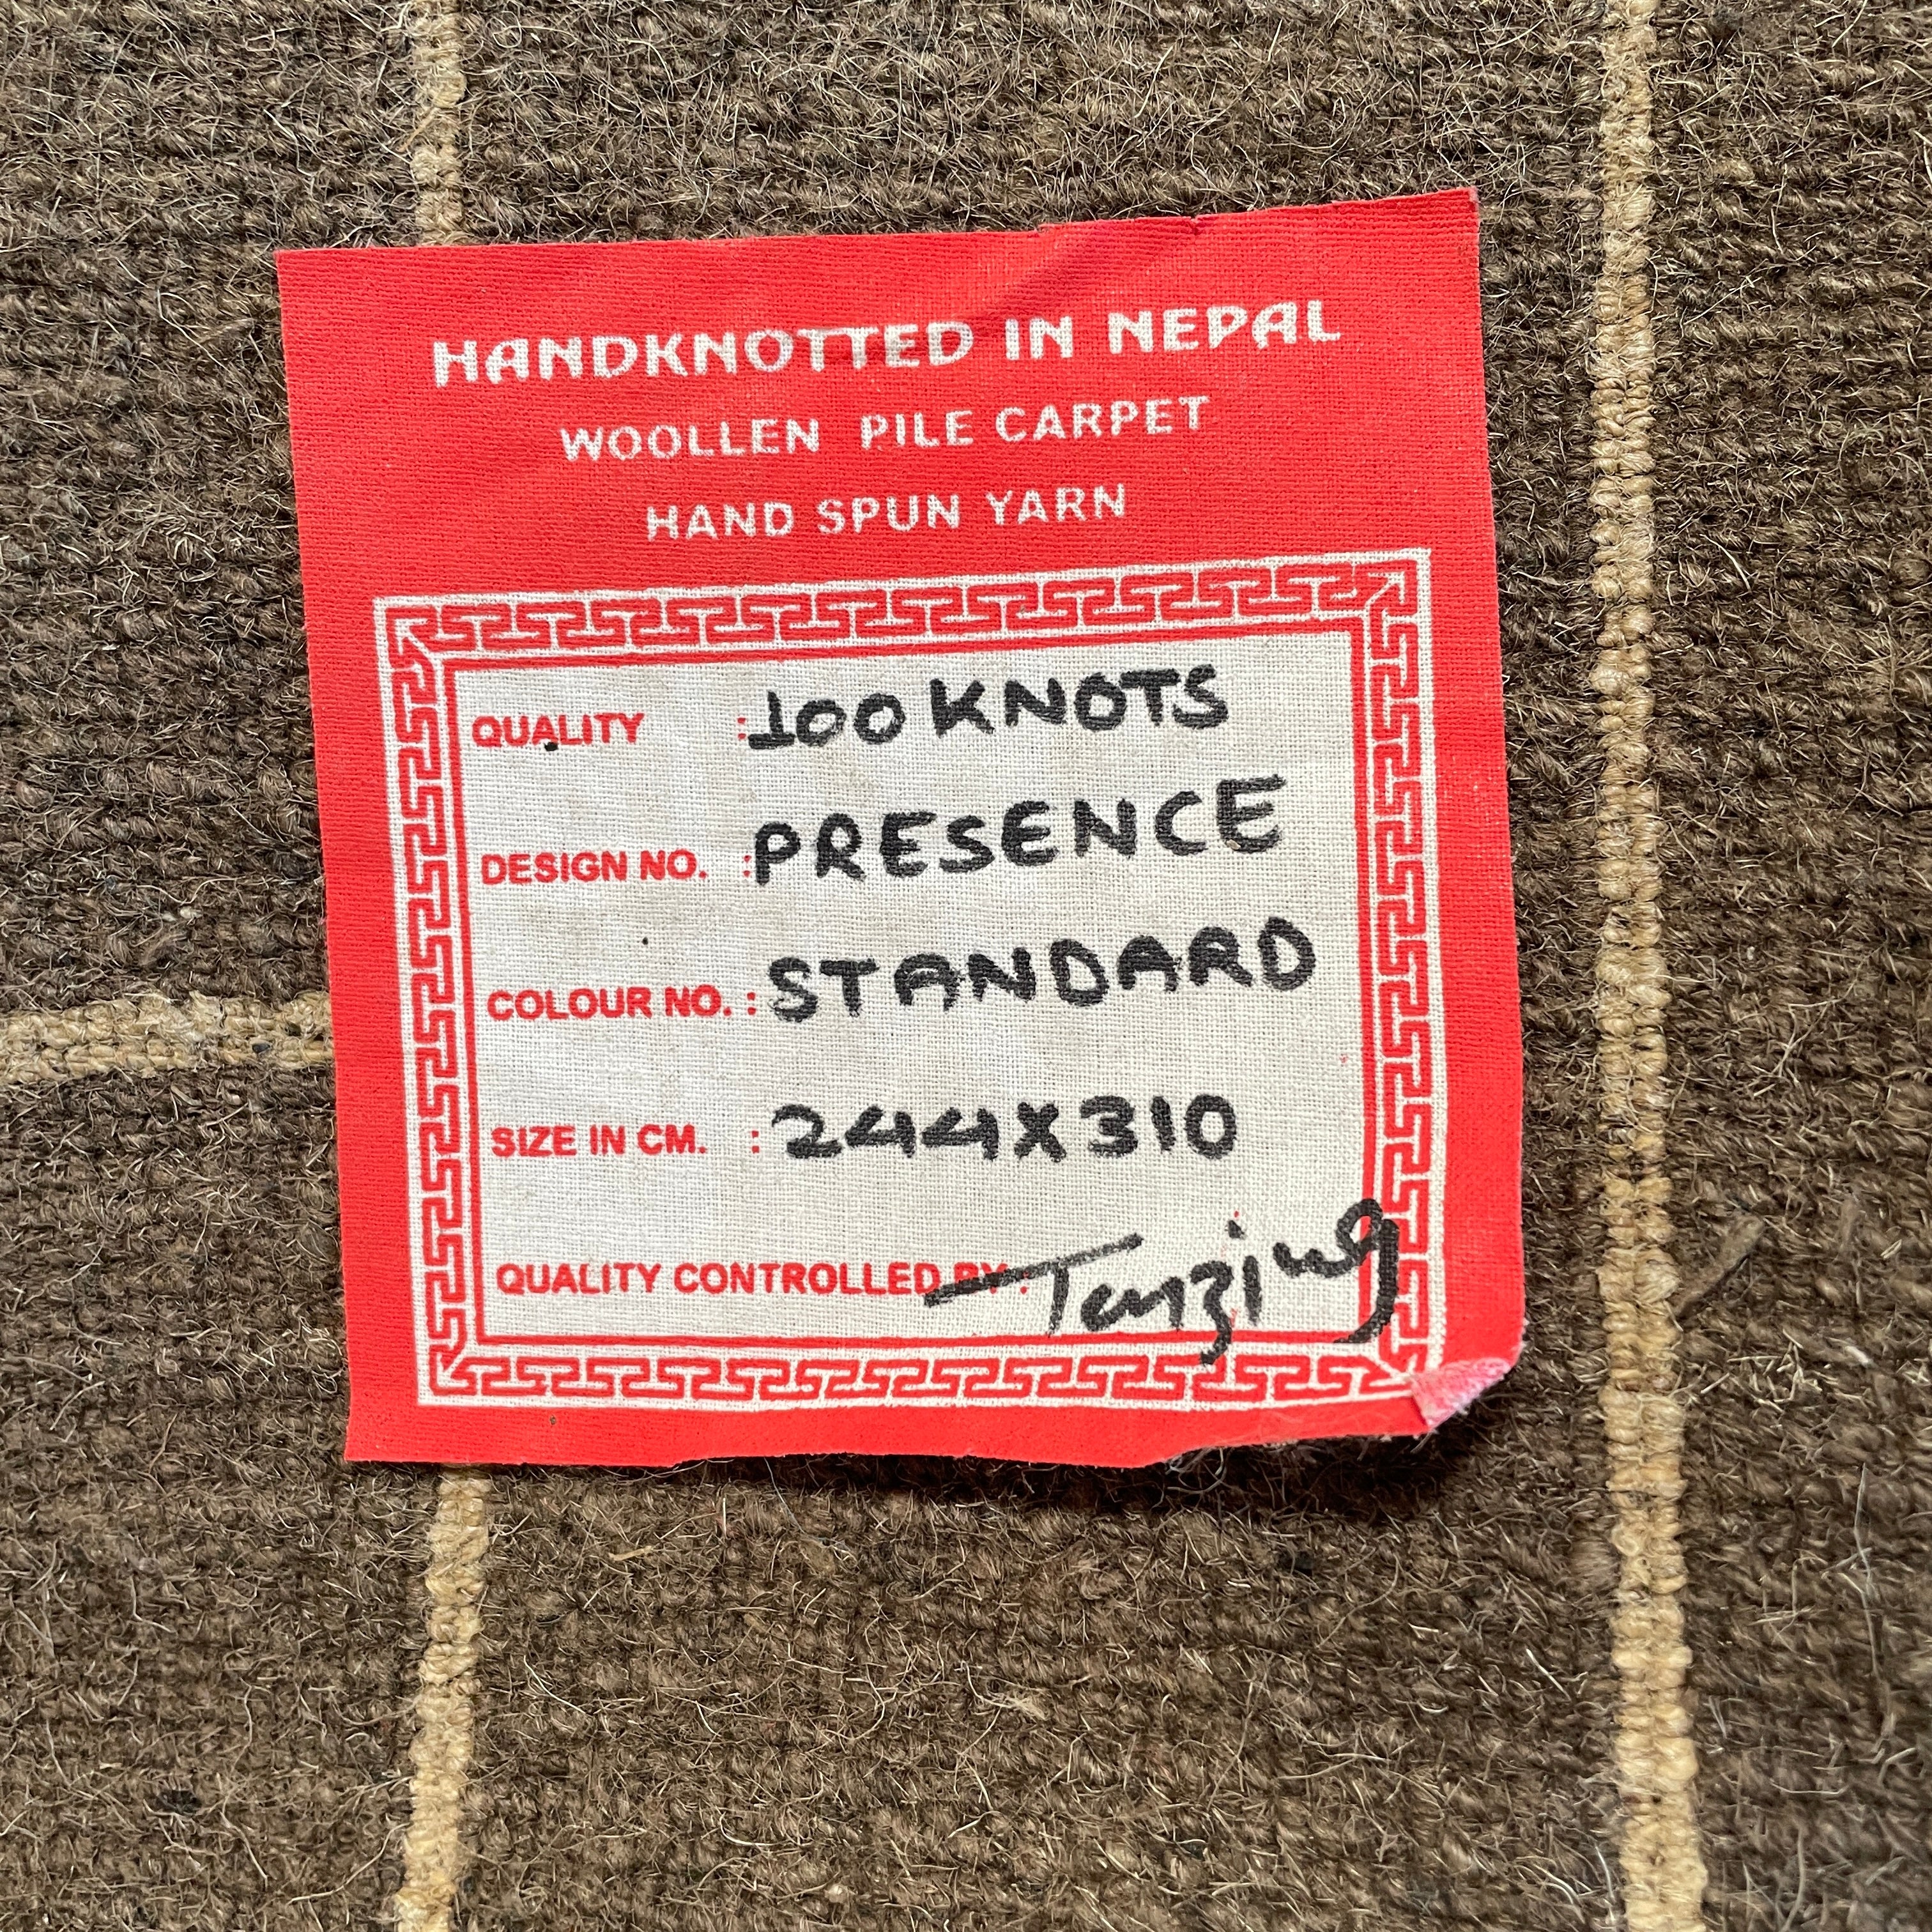 HANDKNOTTED IN NEPAL
WOOLLEN PILE CARPET
HAND SPUN YARN
QUALITY : 100 KNOTS
DESIGN NO. : PRESENCE
COLOUR NO. : STANDARD
SIZE IN CM. : 244X310
QUALITY CONTROLLED BY : Tenzing